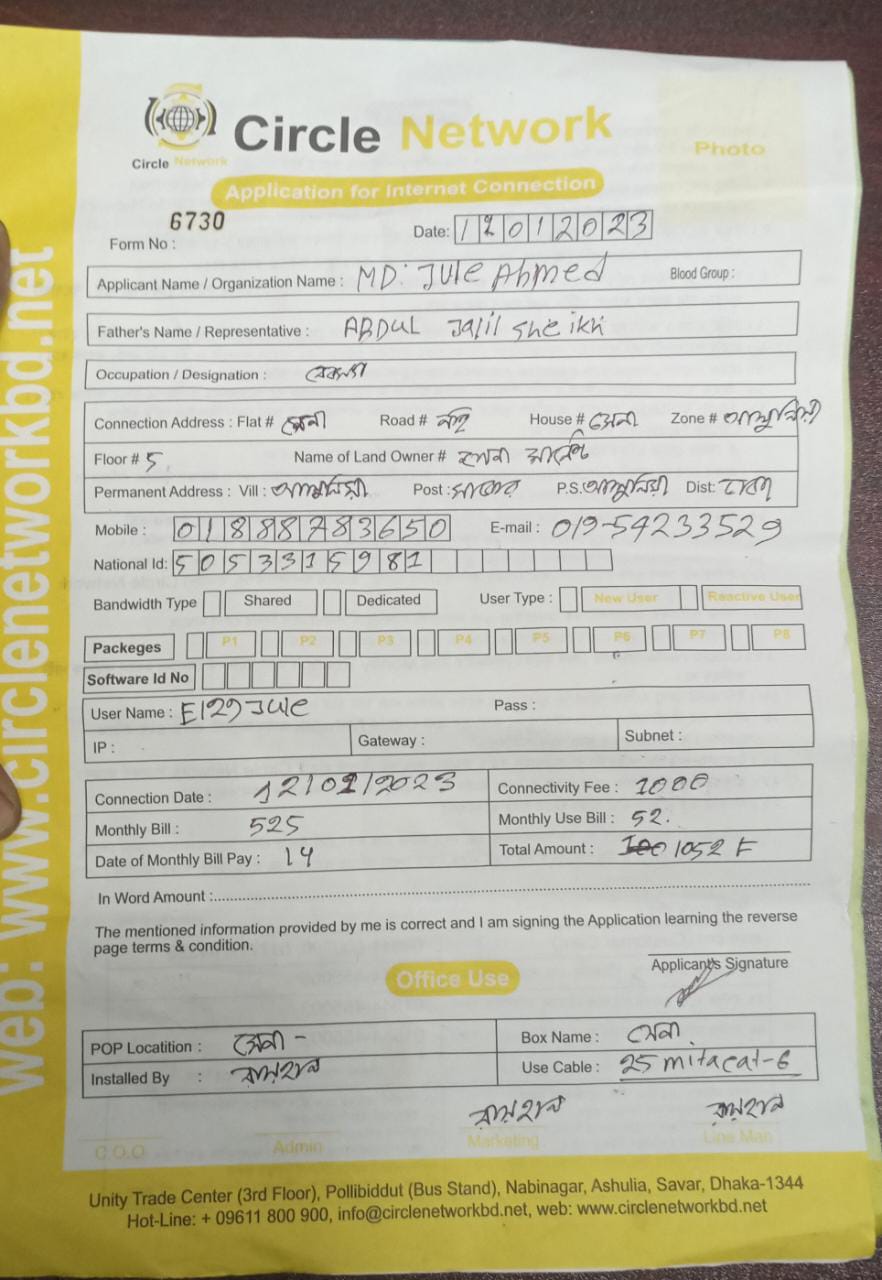 web: www.circlenetworkbd.net
Circle Network
Circle Network
Photo
Application for Internet Connection
6730
Form No :
Date: 12012023
Applicant Name / Organization Name : MD. JUle Ahmed Blood Group :
Father's Name / Representative : ABDUL Jalil Sheikh
Occupation / Designation :
Connection Address : Flat # Road # House # Zone #
Floor # 5 Name of Land Owner #
Permanent Address : Vill : Post : P.S. Dist: ঢাকা
Mobile : 01888783650 E-mail : 019-54233529
National Id: 5053315981
Bandwidth Type Shared Dedicated User Type : New User Reactive User
Packeges P1 P2 P3 P4 P5 P6 P7 P8
Software Id No
User Name : E129JUle Pass :
IP : Gateway : Subnet :
Connection Date : 12/01/2023 Connectivity Fee : 1000
Monthly Bill : 525 Monthly Use Bill : 52.
Date of Monthly Bill Pay : 14 Total Amount : 1052
In Word Amount :
The mentioned information provided by me is correct and I am signing the Application learning the reverse
page terms & condition.
Applicant's Signature
Office Use
POP Locatition : Box Name :
Installed By : Use Cable : 25 mita cat-6
C.O.O Admin Marketing Line Man
Unity Trade Center (3rd Floor), Pollibiddut (Bus Stand), Nabinagar, Ashulia, Savar, Dhaka-1344
Hot-Line: + 09611 800 900, info@circlenetworkbd.net, web: www.circlenetworkbd.net